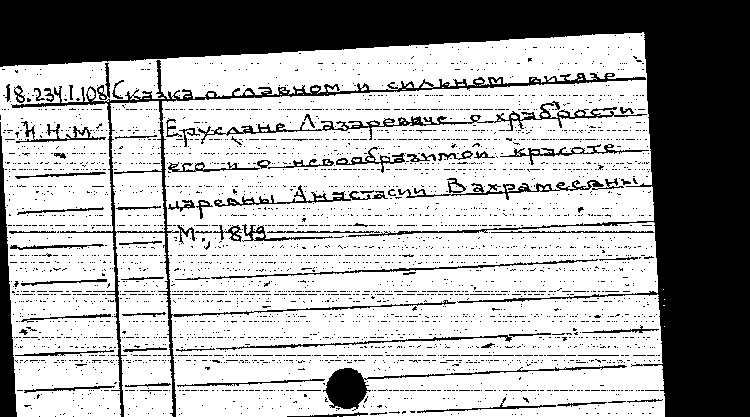 18.234.1.108 Сказка о славном и сильном витязе
И.Н.М. Еруслане Лазаревиче о храбрости
его и о невообразимой красоте
царевны Анастасии Вахрамеевны.
М., 1849